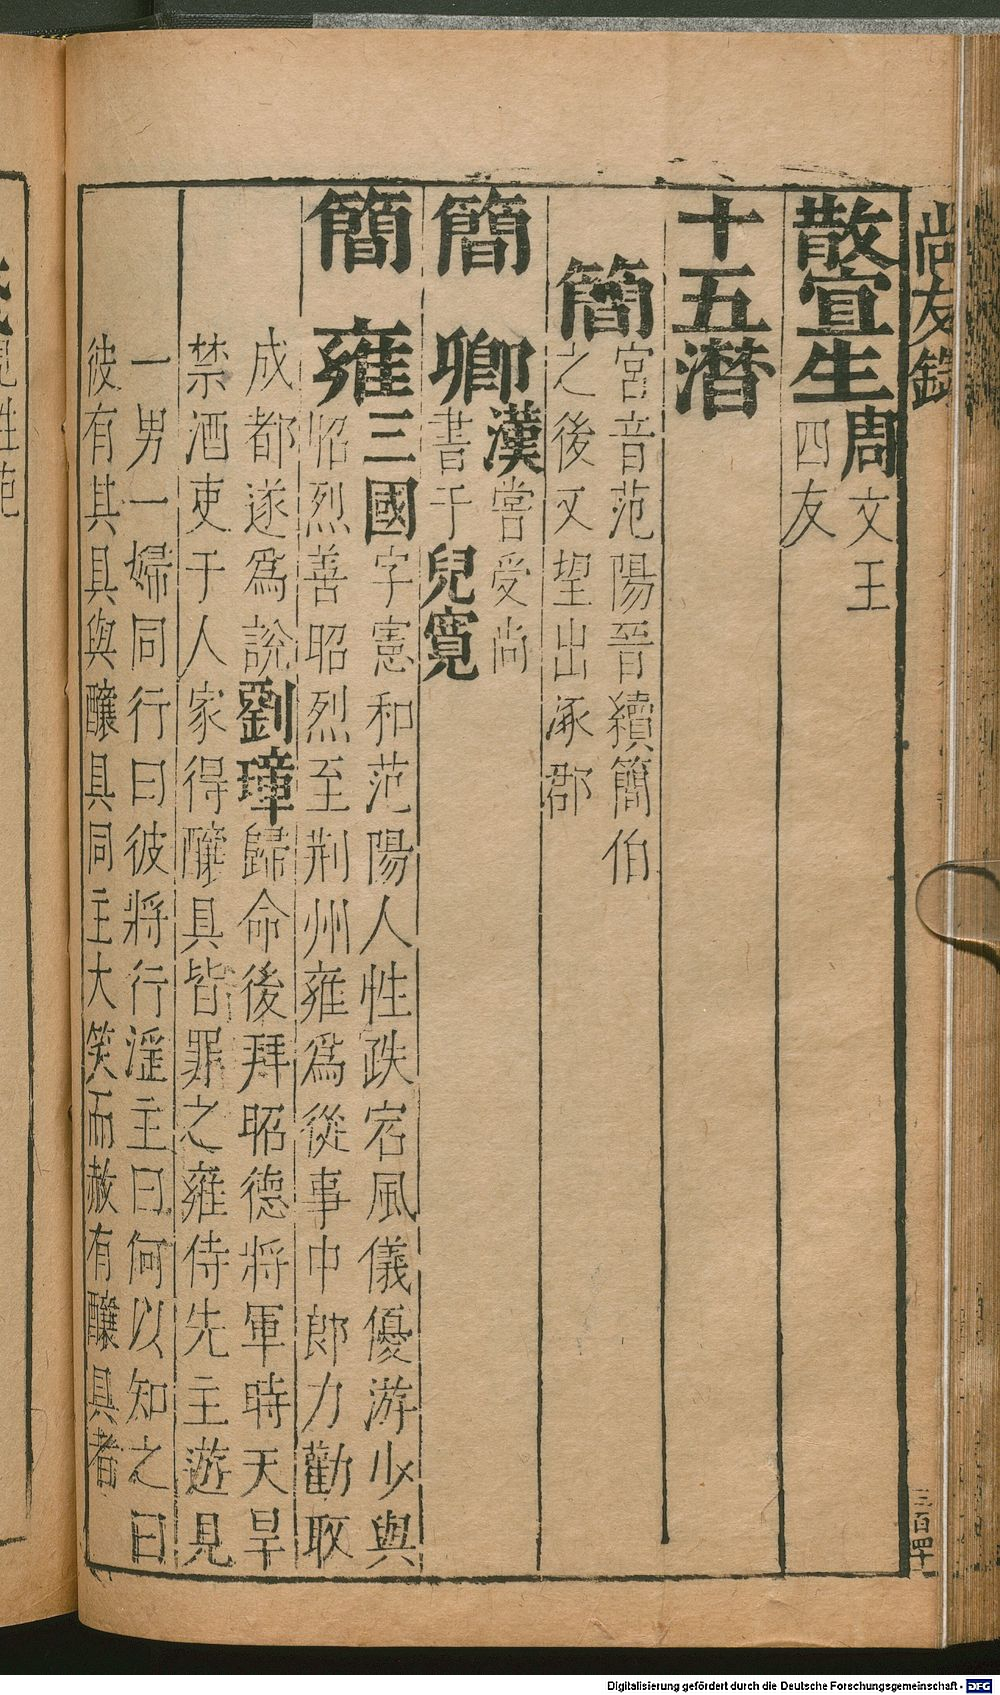 尚友錄
散宜生
周文王
四友
十五潸
簡
宮音范陽晉續簡伯
之後又望出涿郡
簡卿
漢嘗受尚
書于兒寬
簡雍
三國字憲和范陽人性跌宕風儀優游少與
昭烈善昭烈至荆州雍爲從事中郎力勸取
成都遂爲說劉璋歸命後拜昭德將軍時天旱
禁酒吏于人家得釀具皆罪之雍侍先主遊見
一男一婦同行曰彼將行淫主曰何以知之曰
彼有其具與釀具同主大笑而赦有釀具者
三百四十
Digitalisierung gefördert durch die Deutsche Forschungsgemeinschaft - DFG